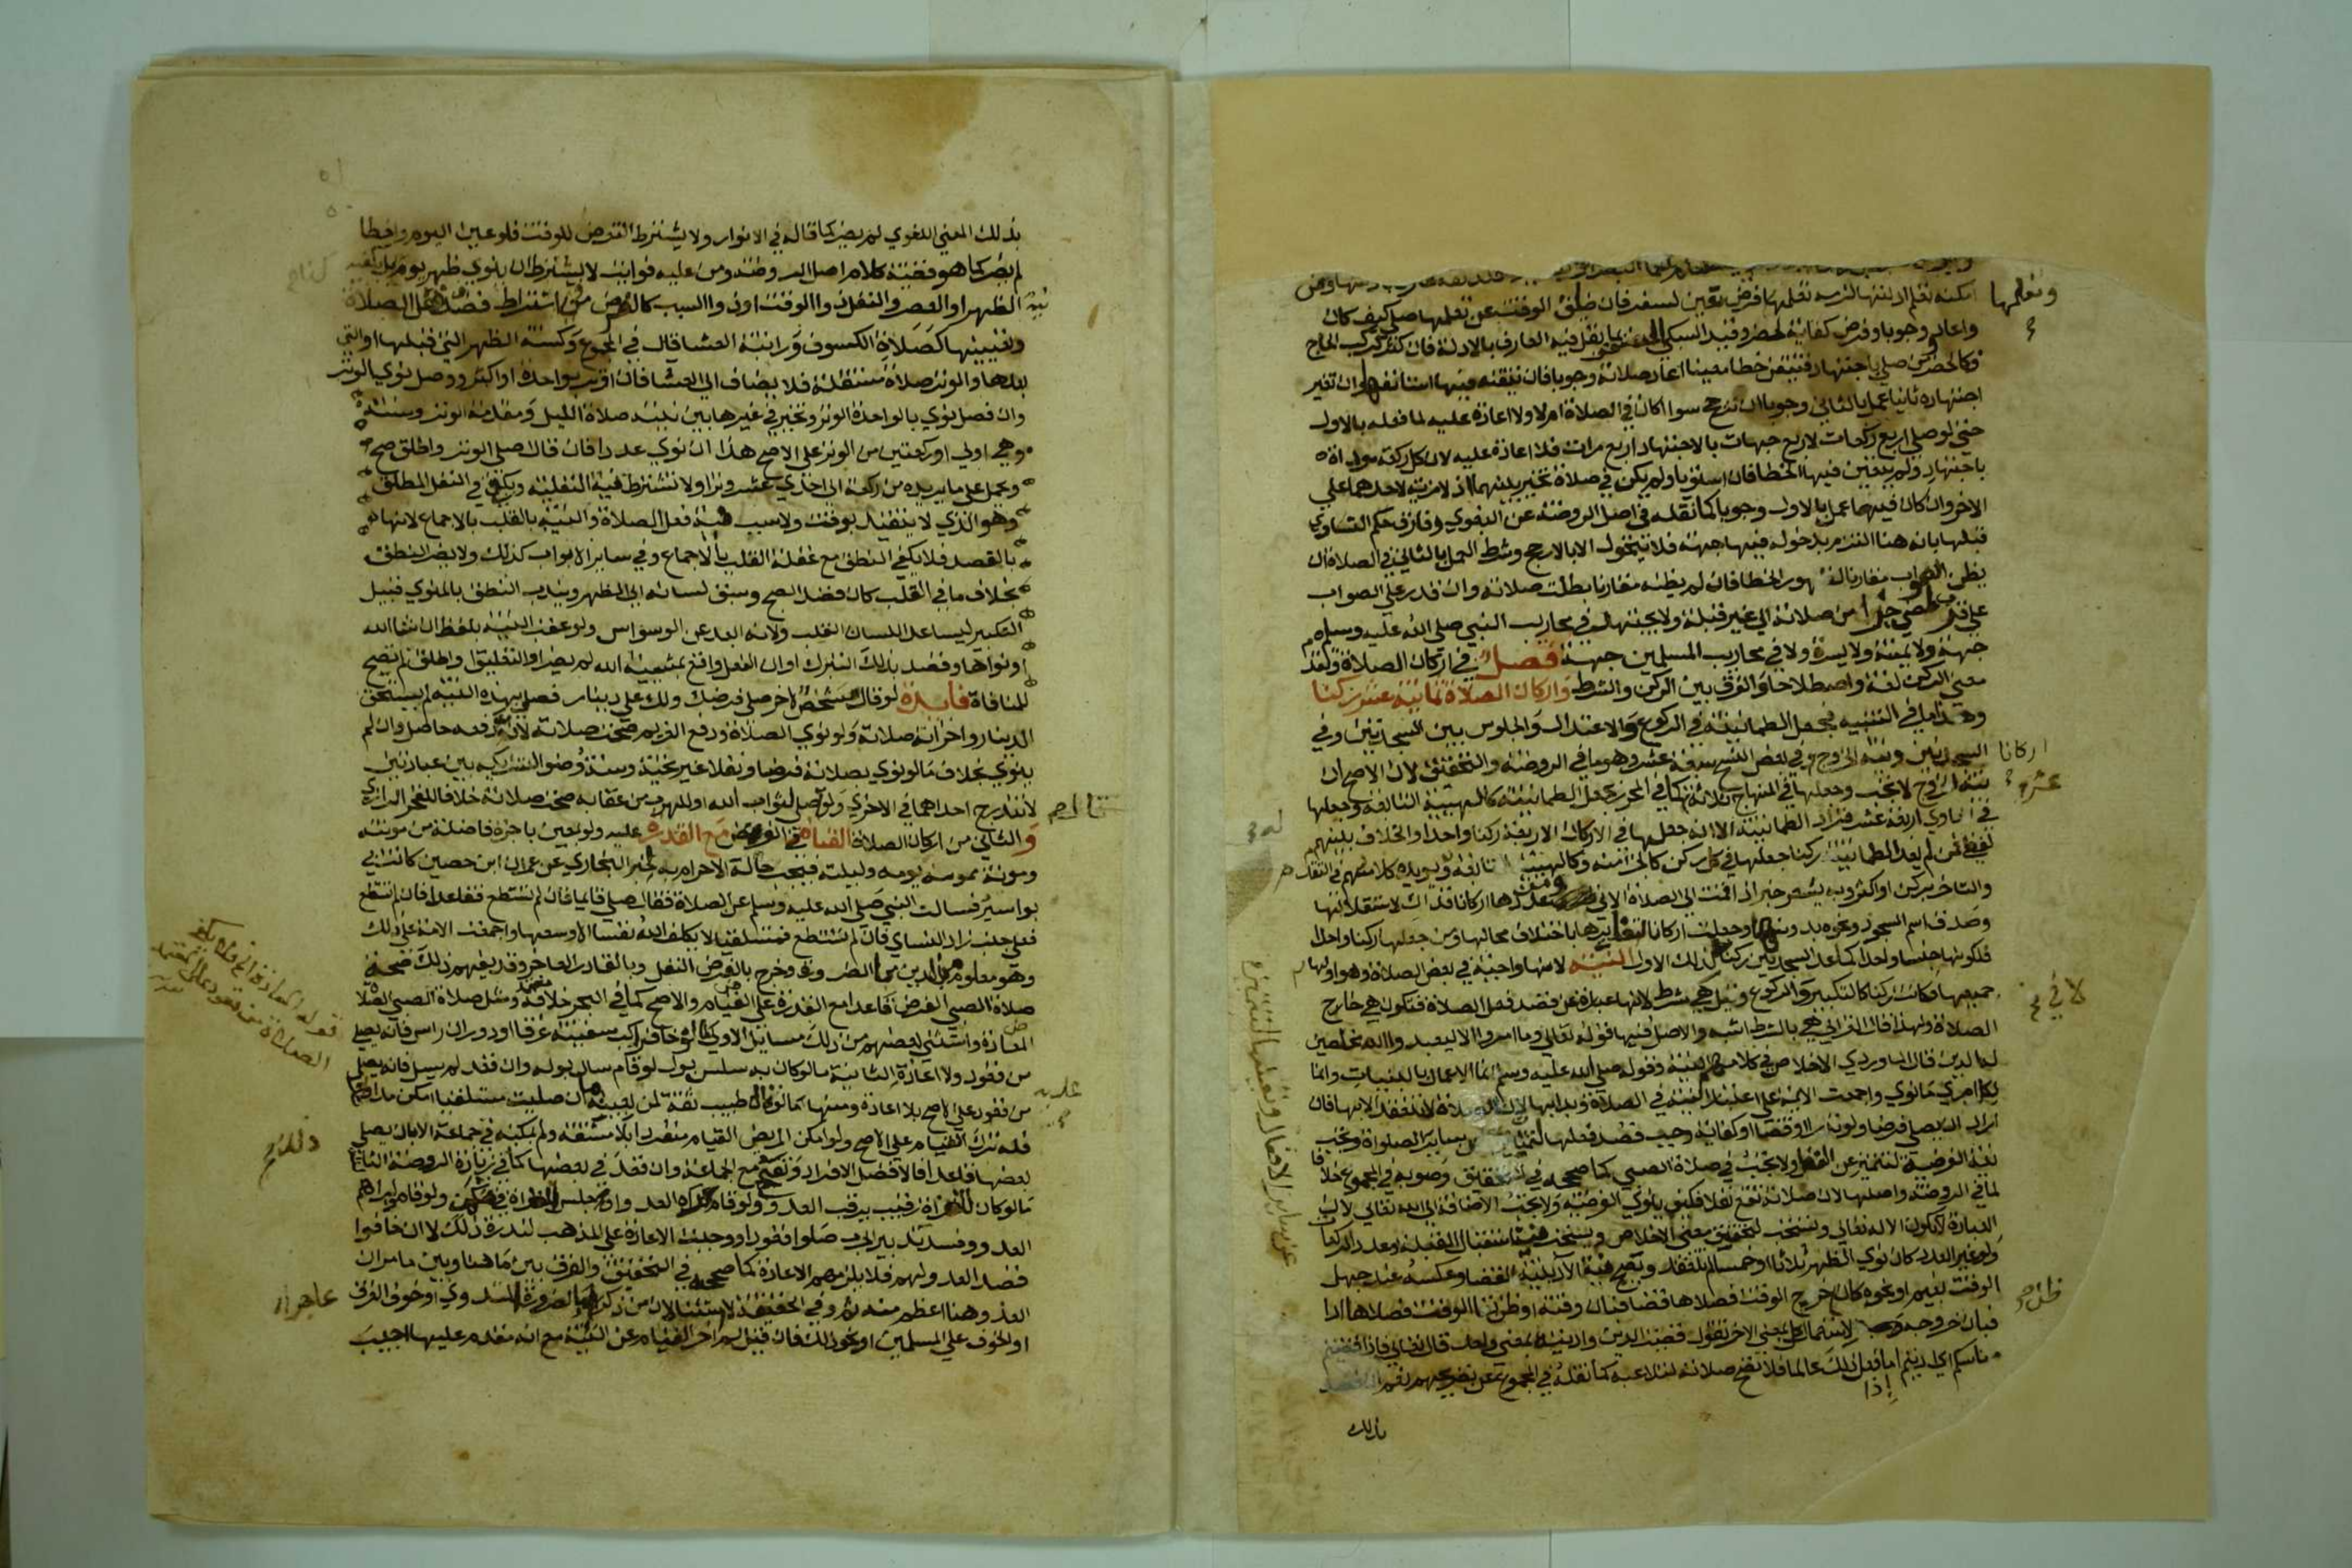 امكنه تعلم ادلتها لزمه تعلمها فرض تعين لسفر فان ضاق الوقت عن تعلمها صلى كيف كان
واعاد وجوبا وفرض كفاية لحضر وقيد السبكي
فكالحضر ومن صلى باجتهاد فتيقن خطا معينا اعاد صلاته وجوبا فان تيقنه فيها استانفها وان تغير
اجتهاده ثانيا عمل بالثاني وجوبا ان ترجح سوا اكان في الصلاة ام لا ولا اعادة عليه لما فعله بالاول
حتى لو صلى اربع ركعات لاربع جهات بالاجتهاد اربع مرات فلا اعادة عليه لان كل ركعة موداة
باجتهاد ولم يتعين فيها الخطا فان استويا ولم يكن في صلاة تخير بينهما اذ لا مزية لاحدهما على
الاخر وان كان فيها عمل بالاول وجوبا كما نقله في اصل الروضة عن البغوي وفارق حكم التساوي
قبلها بانه هنا التزم بدخوله فيها جهة فلا يتحول الا بالارجح وشرط العمل بالثاني في الصلاة ان
يظن الصواب مقارنا لظهور الخطا فان لم يظنه مقارنا بطلت صلاته وان قدر على الصواب
على قرب لمضي جزا من صلاته الى غير قبلة ولا يجتهد في محاريب النبي صلى الله عليه وسلم
جهة ولا يمنة ولا يسرة ولا في محاريب المسلمين جهة فصل في اركان الصلاة وتقدم
معنى الركن لغة واصطلاحا والفرق بين الركن والشرط واركان الصلاة ثمانية عشر ركنا
وهذا ما في التنبيه بجعل الطمانينة في الركوع والاعتدال والجلوس بين السجدتين وفي
السجدتين ونية الخروج وفي بعض النسخ سبعة عشر وهو ما في الروضة والتحقيق لان الاصح ان
نية الخروج لا تجب وجعلها في المنهاج ثلاثة كما في المحرر بجعل الطمانينة كالهيئة التابعة وجعلها
في الحاوي اربعة عشر فزاد الطمانينة الا انه جعلها في الاركان الاربعة ركنا واحدا والخلاف بينهم
لفظي فمن لم يعد الطمانينة ركنا جعلها في كل ركن كالجزء منه وكالهيئة التابعة ويويده كلامهم في التقدم
والتاخر بركن او اكثر وبه يشعر خبر اذا قمت الى الصلاة الاتي ومن عدها اركانا فذاك لاستقلالها
وصدق اسم السجود ونحوه بدونها وجعلت اركانا لتغايرها باختلاف محالها ومن جعلها ركنا واحدا
فلكونها جنسا واحدا كما عد السجدتين ركنا لذلك الاول النية لانها واجبة في بعض الصلاة وهو اولها
جميعها فكانت ركنا كالتكبير والركوع وقيل هي شرط لانها عبارة عن قصد فعل الصلاة فتكون هي خارج
الصلاة ولهذا قال الغزالي هي بالشرط اشبه والاصل فيها قوله تعالى وما امروا الا ليعبدوا الله مخلصين
له الدين قال الماوردي الاخلاص في كلامهم النية وقوله صلى الله عليه وسلم انما الاعمال بالنيات وانما
لكل امرئ ما نوى واجمعت الامة على اعتبار النية في الصلاة وبدا بها لان الصلاة لا تنعقد الا بها فان
اراد ان يصلي فرضا ولو نذرا او قضا او كفاية وجب قصد فعلها لتتميز عن ساير الصلوات وتجب
نية الفرضية لتتميز عن النفل ولا تجب في صلاة الصبي كما صححه في التحقيق وصوبه في المجموع خلافا
لما في الروضة واصلها لان صلاته تقع نفلا فكيف ينوي الفرضية ولا تجب الاضافة الى الله تعالى لان
العبادة لا تكون الا له تعالى وتستحب لتحقيق معنى الاخلاص ويستحب نية استقبال القبلة وعدد الركعات
ولو غير العدد كان نوى الظهر ثلاثا او خمسا لم تنعقد وتصح نية الاداء بنية القضا وعكسه عند جهل
الوقت لغيم او نحوه كان ظن خروج الوقت فصلاها قضا فبان وقته او ظن بقا الوقت فصلاها ادا
فبان خروجه لاستعمال كل بمعنى الاخر تقول قضيت الدين واديته بمعنى واحد قال تعالى فاذا قضيتم
مناسككم اي اديتم اما فعل ذلك عالما فلا تصح صلاته لتلاعبه كما نقله في المجموع عن تصريحهم نعم
بذلك
وتعلمها
اركانا
عشر
بذلك المعنى اللغوي لم يضر كما قاله في الانوار ولا يشترط التعرض للوقت فلو عين اليوم واخطا
لم يضر كما هو قضية كلام اصل الروضة ومن عليه فوايت لا يشترط ان ينوي ظهر يوم كذا بل يكفيه
نية الظهر او العصر والنفل ذو الوقت او ذو السبب كالفرض في اشتراط قصد فعل الصلاة
وتعيينها كصلاة الكسوف وراتبة العشا قال في المجموع وكسنة الظهر التي قبلها او التي
بعدها والوتر صلاة مستقلة فلا يضاف الى العشا فان اوتر بواحدة او اكثر ووصل نوى الوتر
وان فصل نوى بالواحدة الوتر وتخير في غيرها بين نية صلاة الليل ومقدمة الوتر وسنته
وهي اولى او ركعتين من الوتر على الاصح هذا ان نوى عددا فان قال اصلي الوتر واطلق صح
وحمل على ما يريده من ركعة الى احدى عشر وترا ولا تشترط نية النفلية ويكفي في النفل المطلق
وهو الذي لا يتقيد بوقت ولا سبب نية فعل الصلاة والنية بالقلب بالاجماع لانها
بالقصد فلا يكفي النطق مع غفلة القلب بالاجماع وفي ساير الابواب كذلك ولا يضر النطق
بخلاف ما في القلب كان قصد الصبح وسبق لسانه الى الظهر ويندب النطق بالمنوي قبيل
التكبير ليساعد اللسان القلب ولانه ابعد عن الوسواس ولو عقب النية بلفظ ان شا الله
او نواها وقصد بذلك التبرك او ان الفعل واقع بمشيئة الله لم يضر او التعليق او اطلق لم تصح
للمنافاة فايدة لو قال شخص لاخر صلي فرضك ولك علي دينار فصلى بهذه النية لم يستحق
الدينار واجزاته صلاته ولو نوى الصلاة ودفع الغريم صحت صلاته لان دفعه حاصل وان لم
ينوي بخلاف ما لو نوى بصلاته فرضا ونفلا غير تحية وسنة وضوء لتشريكه بين عبادتين
لا تندرج احداهما في الاخرى ولو صلى لثواب الله او للهرب من عقابه صحت صلاته خلافا للفخر الرازي
والثاني من اركان الصلاة القيام في الفرض مع القدرة عليه ولو بمعين باجرة فاضلة من مونته
ومونة ممونه يومه وليلته فيجب حالة الاحرام به لخبر البخاري عن عمران ابن حصين كانت بي
بواسير فسالت النبي صلى الله عليه وسلم عن الصلاة فقال صلي قايما فان لم تستطع فقاعدا فان لم تستطع
فعلى جنب زاد النساي فان لم تستطع فمستلقيا لا يكلف الله نفسا الا وسعها واجمعت الامة على ذلك
وهو معلوم من الدين بالضرورة وخرج بالفرض النفل وبالقادر العاجز وقد يفهم ذلك صحة
صلاة الصبي الفرض قاعدا مع القدرة على القيام والاصح كما في البحر خلافه ومثل صلاة الصبي الصلاة
المعادة واستثنى بعضهم من ذلك مسايل الاولى ما لو خاف راكب سفينة غرقا او دوران راس فانه يصلي
من قعود ولا اعادة الثانية ما لو كان به سلس بول لو قام سال بوله وان قعد لم يسل فانه يصلي
من قعود على الاصح بلا اعادة ومنها ما لو قال طبيب ثقة لمن بعينه ما ان صليت مستلقيا امكن مداواتك
فله ترك القيام على الاصح ولو امكن المريض القيام منفردا بلا مشقة ولم يمكنه في جماعة الا بان يصلي
بعضها قاعدا فالافضل الانفراد وتصح مع الجماعة وان قعد في بعضها كما في زيادة الروضة الثالثة
ما لو كان للغزاة رقيب يرقب العدو ولو قام لراه العدو او جلس الغزاة في مكمن ولو قاموا لراهم
العدو وفسد تدبير الحرب صلوا قعودا ووجبت الاعادة على المذهب لندرة ذلك لا ان خافوا
قصد العدو لهم فلا يلزمهم الاعادة كما صححه في التحقيق والفرق بين ما هنا وبين ما مر ان
العذر هنا اعظم منه ثم وفي الحقيقة لا استثنا لان من ذكر عاجز اما لضرورة التداوي او خوف الغرق
او الخوف على المسلمين او نحو ذلك فان قيل لم اخر القيام عن النية مع انه مقدم عليها اجيب
عليه
عاجزا